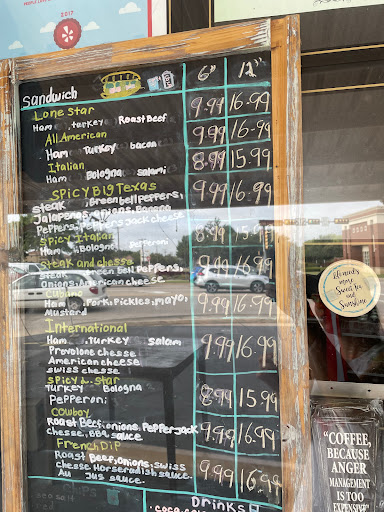 2017
Sandwich 6" 12"
Lone Star 9.99 16.99
Ham, turkey Roast Beef
All American 9.99 16.99
Ham Turkey bacon
Italian 8.99 15.99
Ham Bologna Salami
Spicy Big Texas 9.99 16.99
Steak, Green bell Peppers,
Jalapenos, onions, Banana
Peppers, Pepper jack cheese
Spicy Italian 8.99 15.99
Ham, Bologna, Pepperoni
Steak and cheese 9.99 16.99
Steak Green Bell Peppers,
Onions, American cheese
Cubano 9.99 16.99
Ham, Pork, Pickles, mayo,
Mustard
International 9.99 16.99
Ham, Turkey Salam
Provolone cheese
American cheese
Swiss cheese
Spicy L. Star 8.99 15.99
Turkey Bologna
Pepperoni
Cowboy 9.99 16.99
Roast Beef, onions, Pepper jack
cheese, BBQ sauce
French Dip 9.99 16.99
Roast Beef, onions, Swiss
cheese Horseradish sauce
Au Jus sauce.
Drinks
more
Sweet Tea
and
Sunshine
"COFFEE,
BECAUSE
ANGER
MANAGEMENT
IS TOO
EXPENSIVE"